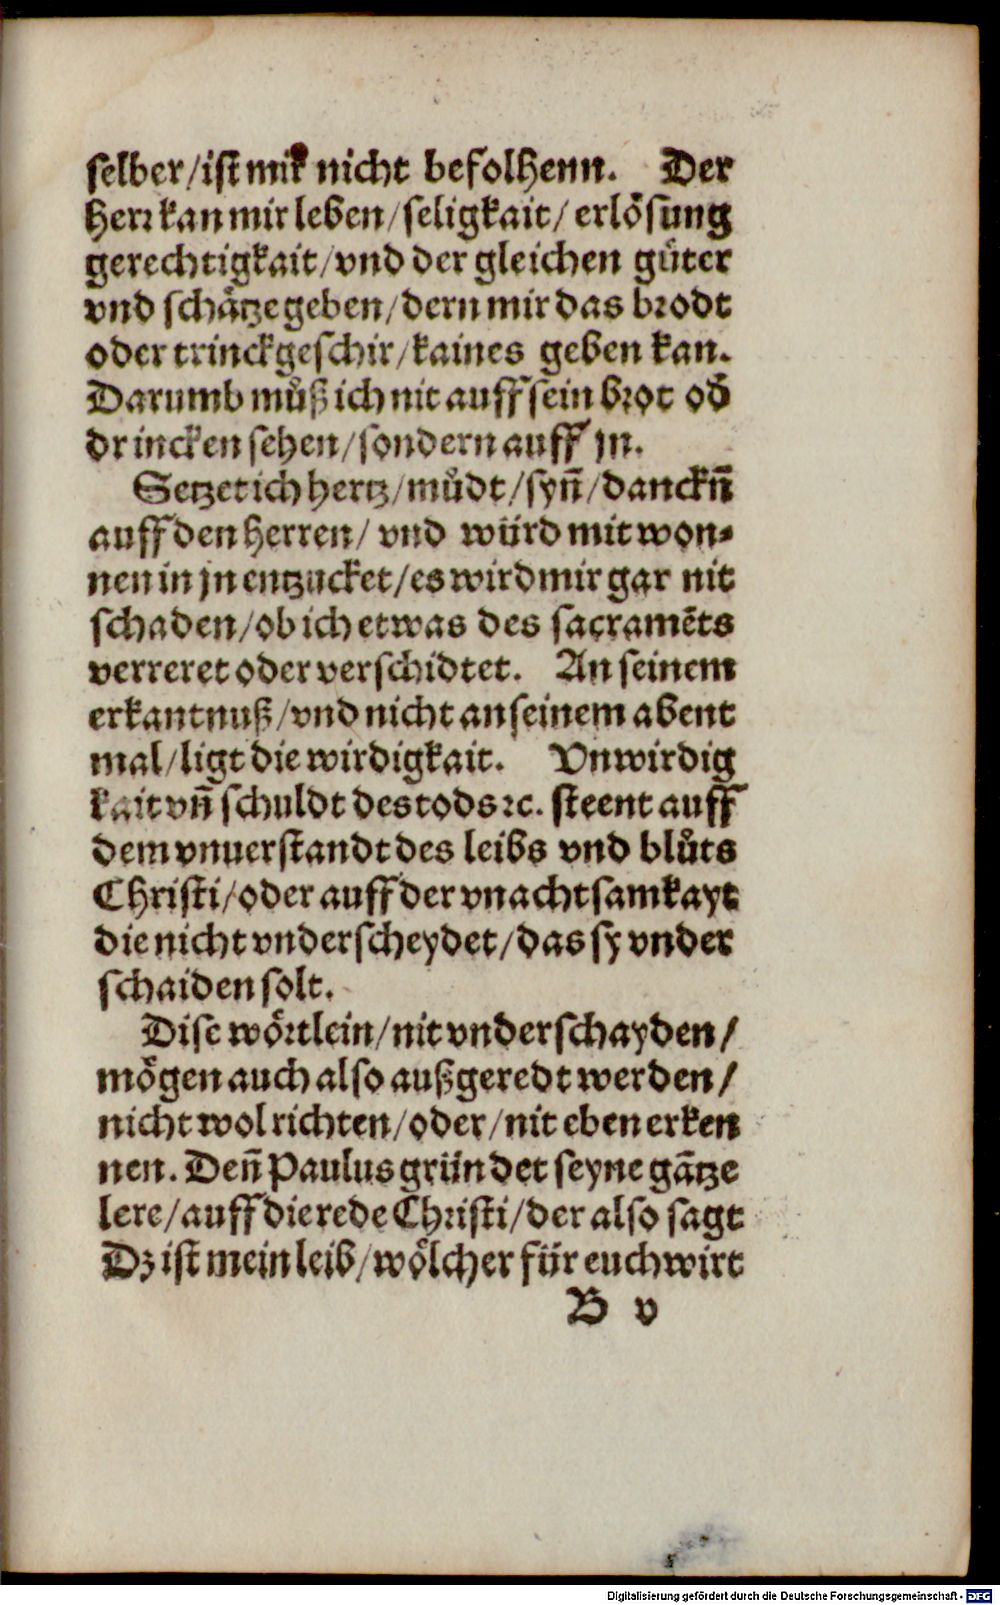 selber/ist mir nicht befolhenn. Der
herr kan mir leben/seligkait/erlösung
gerechtigkait/vnd der gleichen gůter
vnd schätze geben/dern mir das brodt
oder trinckgeschir/kaines geben kan.
Darumb můß ich nit auff sein brot oď
drincken sehen/sondern auff jn.
Setzet ich hertz/můdt/syñ/danckñ
auff den herren/vnd würd mit won⸗
nen in jn entzucket/es wird mir gar nit
schaden/ob ich etwas des sacramẽts
verreret oder verschidtet. An seinem
erkantnuß/vnd nicht an seinem abent
mal/ligt die wirdigkait. Vnwirdig
kait vñ schuldt des tods ꝛc. steent auff
dem vnuerstandt des leibs vnd blůts
Christi/oder auff der vnachtsamkayt
die nicht vnderscheydet/das sy vnder
schaiden solt.
Dise wörtlein/nit vnderschayden/
mögen auch also außgeredt werden/
nicht wol richten/oder/nit eben erken
nen. Deñ Paulus gründet seyne gãtze
lere/auff die rede Christi/der also sagt
Dz ist mein leib/wölcher für euch wirt
B v
Digitalisierung gefördert durch die Deutsche Forschungsgemeinschaft - DFG